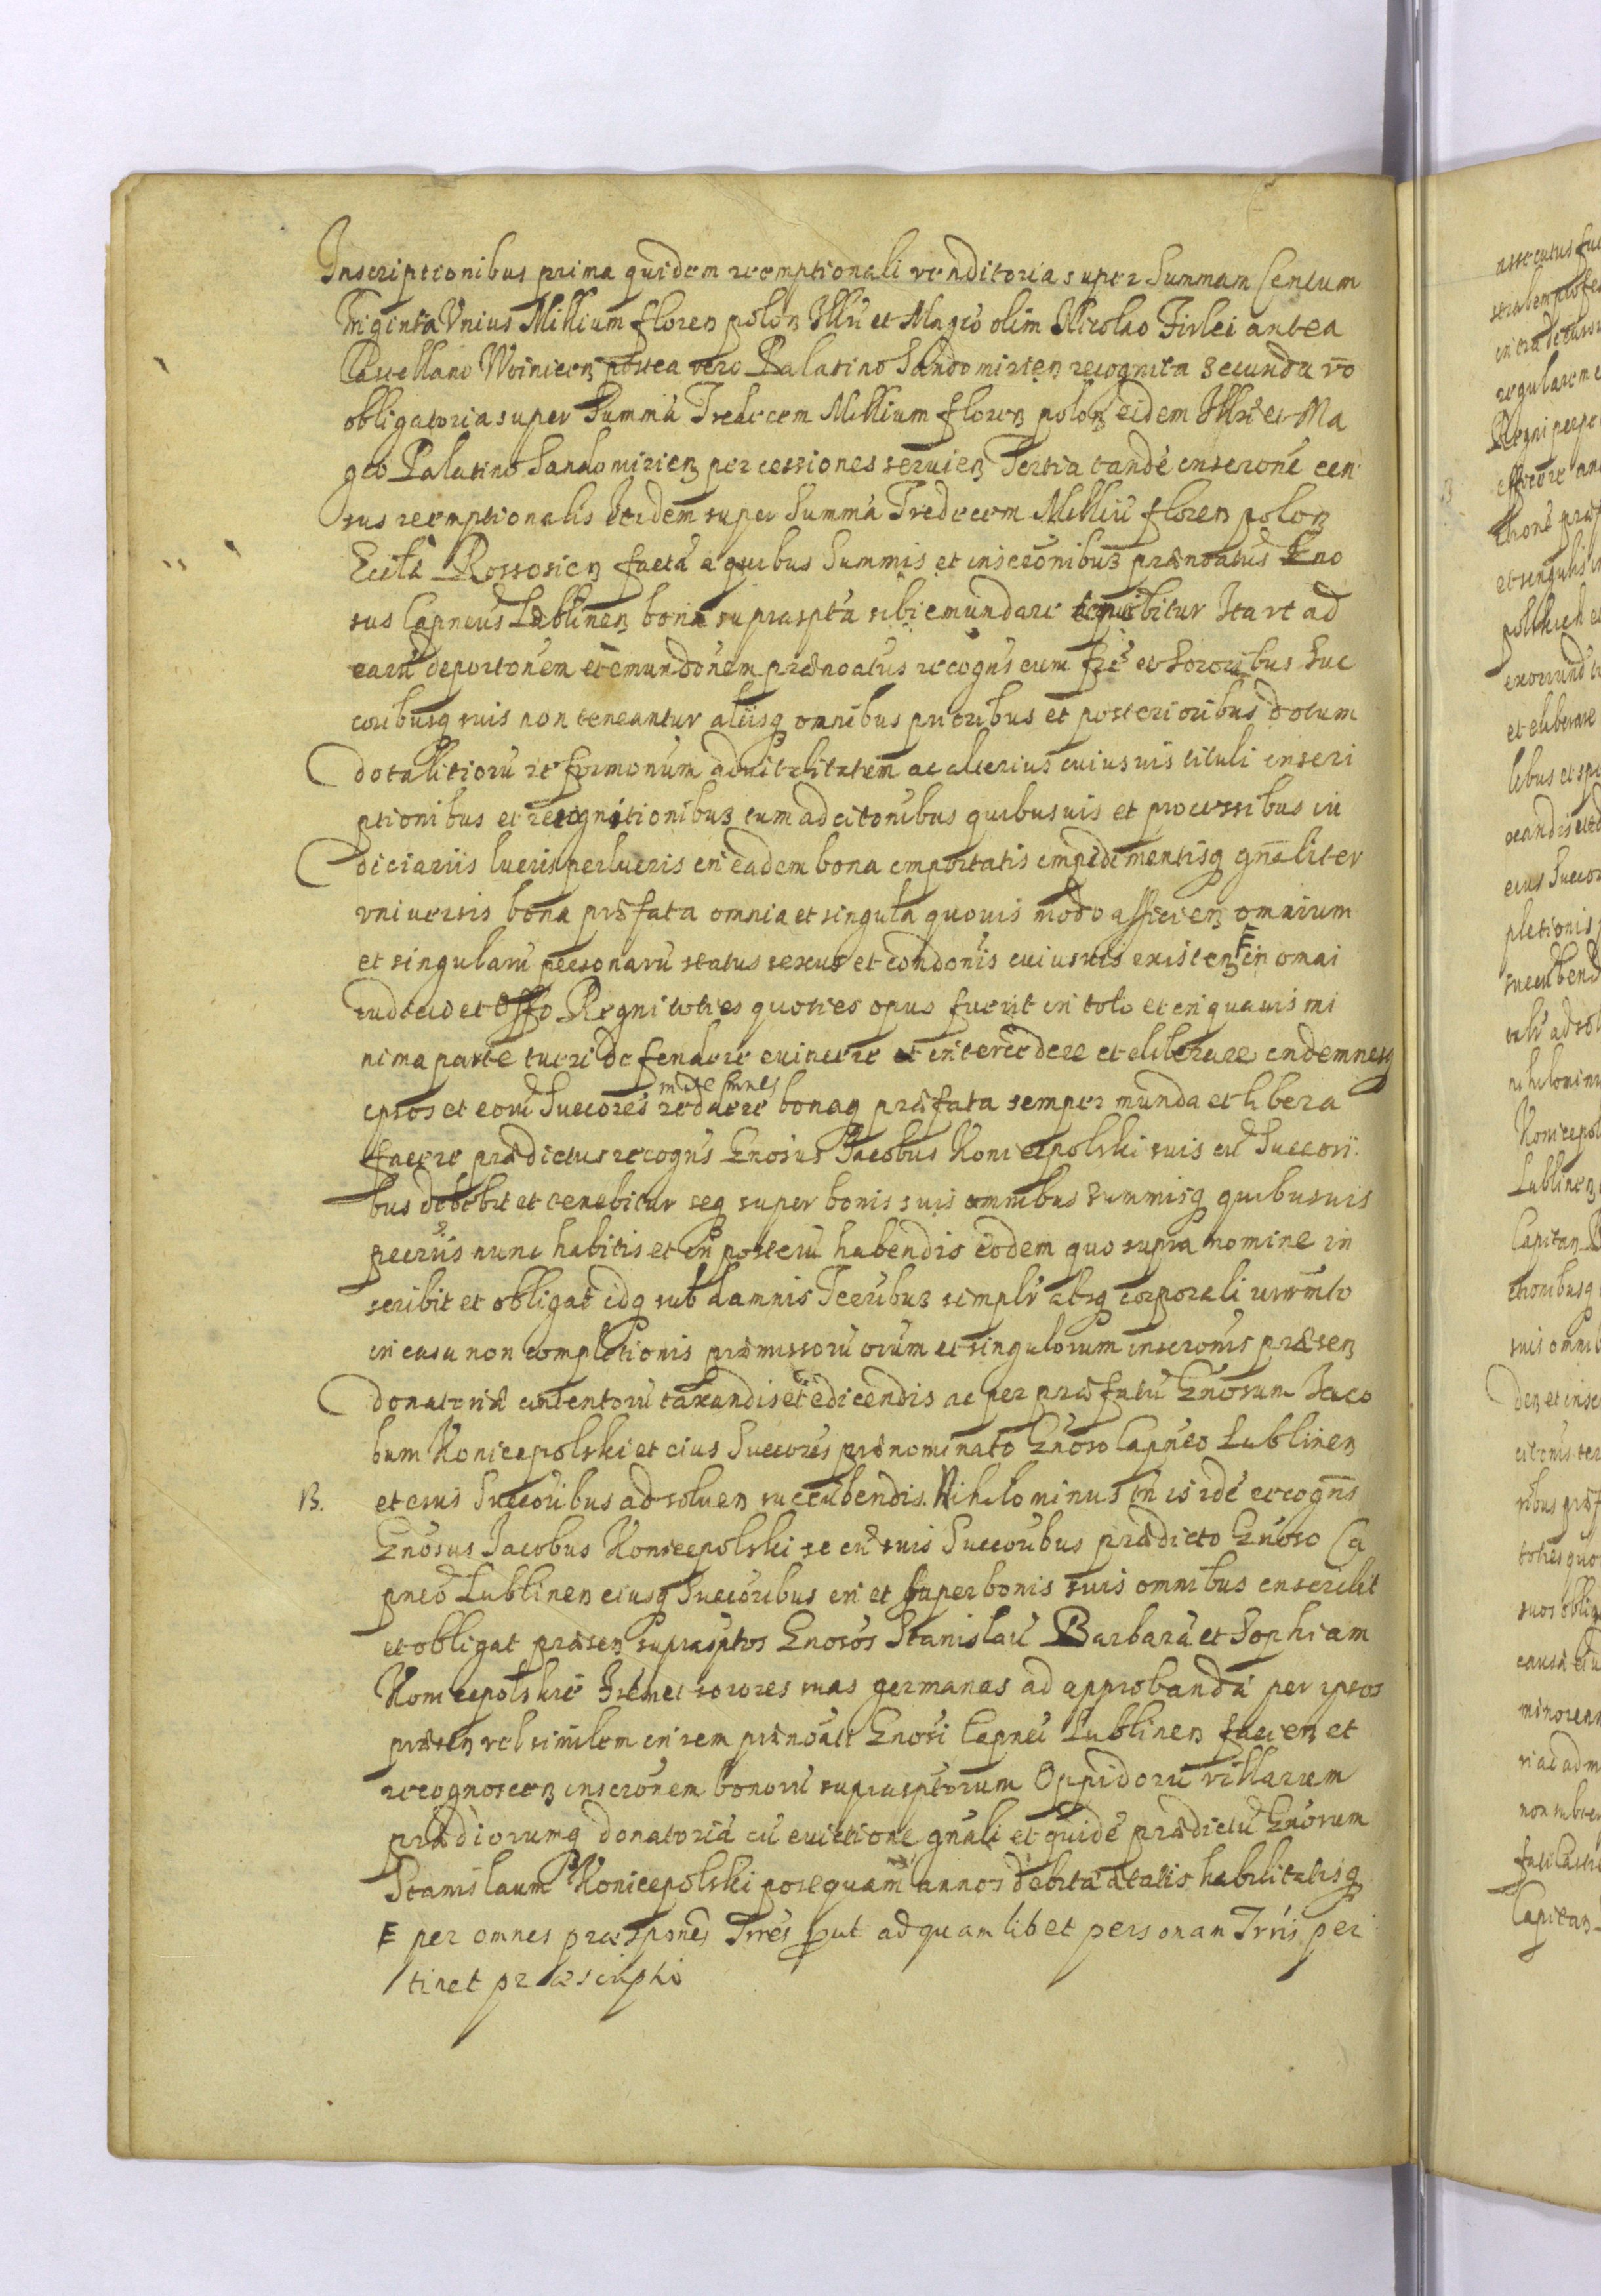 Inscriptionibus prima quidem reemptionali venditoria super Summam Centum
Triginta Vnius Millium floren polon Illri et Magco olim Nicolao Firlei antea
Castellano Woinicen postea vero Palatino Sandomirien recognita Secunda vo
obligatoria super Summa Tredecem Millium floren polon eidem Illri et Ma
gco Palatino Sandomirien per cessiones seruien Tertia tande inscrone cen
sus reemptionalis itidem super Summa Tredecem Milliu floren polon
Eccla Rossosien facta a quibus Summis et inscronibus prænoatus Gno
sus Capneus Lublinen bona suprasptа sibi emundare tenebitur Ita vt ad
earu deportonem et emundonem prænoatus recogns cum fre et Sororibus Suc
coribusq suis non teneantur aliisq omnibus prioribus et posterioribus dotum
dotalitioru reformonum aduitalitatem ac alterius cuiusuis tituli inscri
ptionibus et recognitionibus cum adcitonibus quibusuis et processibus iu
diciariis lucris perlucris in eadem bona importatis impedimentisq gnaliter
vniuersis bona præfata omnia et singula quouis modo afficien omnium
et singularu personaru status sexus et condonis cuiusuis existen F in omni
iudicio et Offo Regni toties quoties opus fuerit in toto et in quauis mi
nima parte tueri defendere euincere et intercedere et eliberare indemnesq
ipsos et eoru Succores reddere indemnes bonaq præfata semper munda et libera
facere prædictus recogns Gnosus Jacobus Koniecpolski suis cu Succori
bus debebit et tenebitur seq super bonis suis omnibus summisq quibusuis
pecuniis nunc habitis et in posteru habendis eodem quo supra nomine in
scribit et obligat idq sub damnis Terribus simplr absq corporali iurmto
in casu non completionis præmissoru oium et singulorum inscronis præsen
donatoriæ contentoru taxandis et edicendis ac per præfatu Gnosum Jaco
bum Koniecpolski et eius Succores prænominato Gnoso Capneo Lublinen
B. et eius Succoribus adsoluen succubendis. Nihilominus in is ide recogns
Gnosus Jacobus Koniecpolski se cu suis Succoribus prædicto Gnoso Ca
pneo Lublinen eiusq Succoribus in et super bonis suis omnibus inscribit
et obligat præsen suprasptos Gnosos Stanislau Barbara et Sophiam
Koniecpolskie frem et sorores suas germanas ad approbanda per ipsos
præsen vel similem in rem prænoati Gnosi Capnei Lublinen facien et
recognoscen inscronem bonoru suprasptorum Oppidoru villarum
prædiorumq donatoria cu euictione gnali et quide prædictu Gnosum
Stanislaum Koniecpolski postquam annos debita ætatis habilitatisq
F per omnes præspones Trres put ad quamlibet personam Trris per
tinet præscriptio